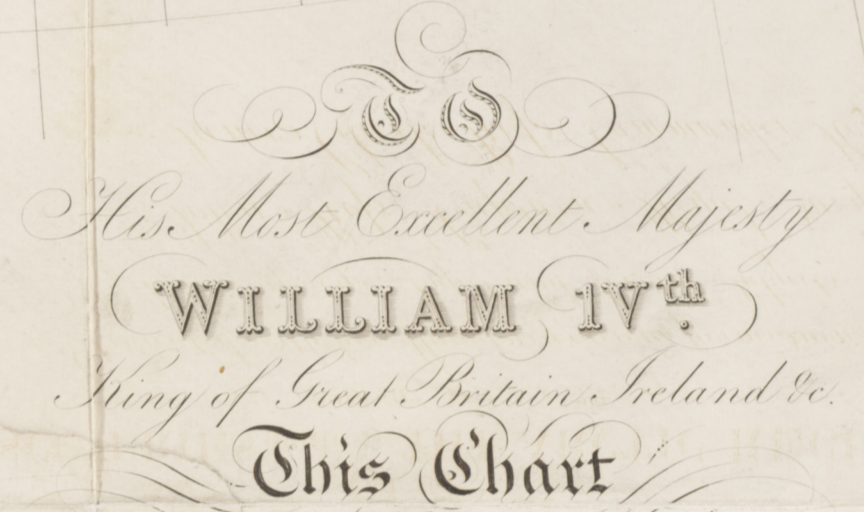 TO
His Most Excellent Majesty
WILLIAM IVth.
King of Great Britain Ireland &c.
This Chart